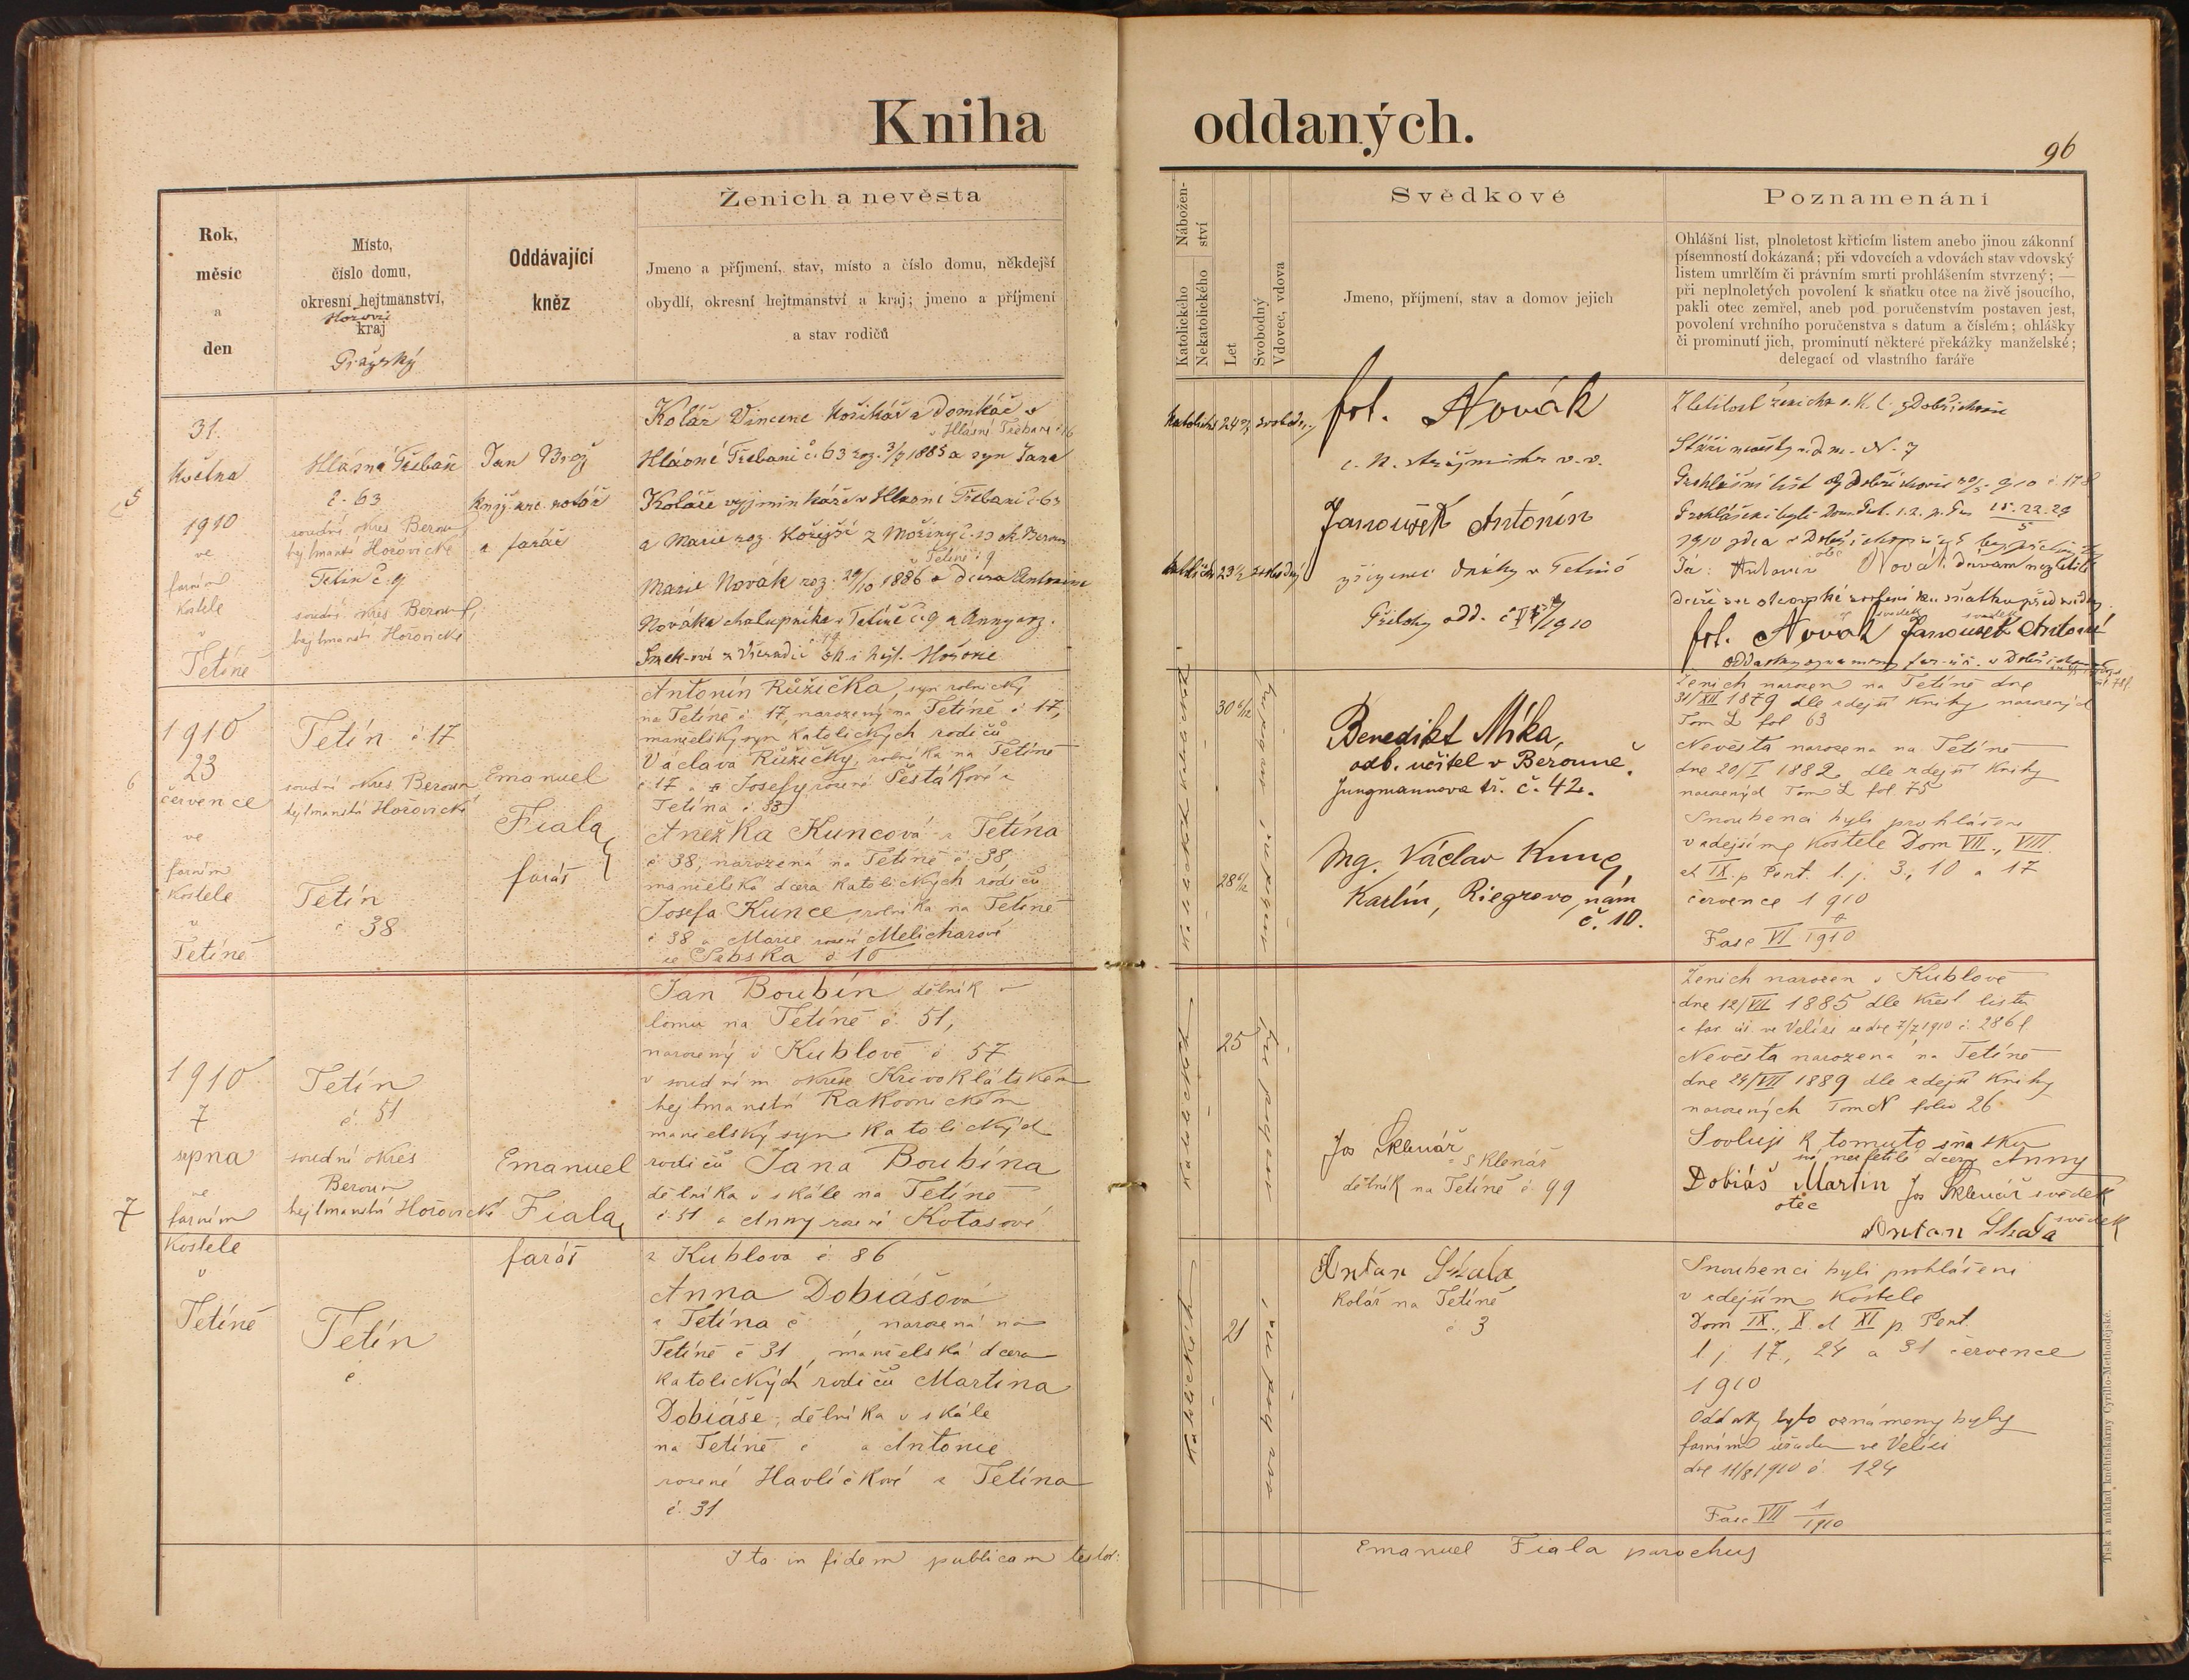 Kniha oddaných.
96
Rok,
měsíc
a
den
Místo,
číslo domu,
okresní hejtmanství,
Hořovic
kraj
Pražský
Oddávající
kněz
Ženich a nevěsta
Jmeno a příjmení, stav, místo a číslo domu, někdejší
obydlí, okresní hejtmanství a kraj; jmeno a příjmení
a stav rodičů
Nábožen-
ství
Katolického
Nekatolického
Let
Svobodný
Vdovec, vdova
Svědkové
Jmeno, příjmení, stav a domov jejich
Poznamenání
Ohlášní list, plnoletost křticím listem anebo jinou zákonní
písemností dokázaná; při vdovcích a vdovách stav vdovský
listem umrlčím či právním smrti prohlášením stvrzený; —
při neplnoletých povolení k sňatku otce na živě jsoucího,
pakli otec zemřel, aneb pod poručenstvím postaven jest,
povolení vrchního poručenstva s datum a číslem; ohlášky
či prominutí jich, prominutí některé překážky manželské;
delegací od vlastního faráře
5
31.
května
1910
ve
farním
kostele
v
Tetíně
Hlásná Třebaň
č. 63
soudní okres Beroun
hejtmanství Hořovické
Tetín č. 9
soudní okres Beroun
hejtmanství Hořovické
Jan Brož
a farář
Kolář Vincenc košikář a domkář v
Hlásné Třebani č. 63 roz. 3/7 1885 a syn Jana
Koláře výjminkáře v Hlasné Třebani č. 63
a Marie roz. z Mořiny ok. Beroun
v Tetíně č 9
Marie Novák roz. 29/10 1886 a dcera Antonína
Nováka chalupníka v Tetíně č. 9 a Anny roz.
hejt. Hořovic
katolické 24 svobodný
katolické 23 1/2 svobodný
fot. Novák
c. k. v. v.
Janoušek Antonín
zřízenec dráhy v Tetíně
Přílohy odd. 1910
Zletilost ženicha z Dobřichovic
Stáří nevěsty N. 7
Prohlášní list z Dobřichovic 30/5 910 č. 178
1910
Já: Antonín Novák otec dávám nezletilé
dceři své otcovské svolení ku sňatku před svědky.
fot. Novák Janoušek Antonín
svědek svědek
6
1910
23
července
ve
farním
kostele
v
Tetíně
Tetín č 17
soudní okres Beroun
hejtmanství Hořovické
Tetín
č 38
Emanuel
Fiala,
farář
Antonín Růžička, syn rolnický
na Tetíně č. 17, narozený na Tetíně č 17,
manželský syn katolických rodičů
Václava Růžičky, rolníka na Tetíně
č 17 a Josefy rozené Šestákové z
Tetína č 33
Anežka Kuncová z Tetína
č 38, narozená na Tetíně č 38,
manželská dcera katolických rodičů
Josefa Kunce, rolníka na Tetíně
č 38 a Marie rozené Melicharové
ze Srbska č 10
30 6/12
28 6/12
Benedikt Míka,
odb. učitel v Berouně.
Jungmannova tř. č. 42.
Ing. Václav Kunc,
Karlín, Riegrovo nám
č. 10.
Ženich narozen na Tetíně dne
31/XII 1879 dle zdejší knihy narozených
Tom L fol 63
Nevěsta narozena na Tetíně
dne 20/I 1882 dle zdejší knihy
narozených Tom L fol 75
Snoubenci byli prohlášeni
v zdejším kostele Dom VII., VIII.
et IX. p. Pent. t. j. 3., 10 a 17
července 1910
Fasc VI 1910
7
1910
7
srpna
ve
farním
kostele
v
Tetíně
Tetín
č. 51
soudní okres
Beroun
hejtmanství Hořovické
Tetín
č.
Emanuel
Fiala,
farář
Jan Boubín dělník v
lomu na Tetíně č. 51,
narozený v Kublově č 57
v soudním okrese Křivoklátském
hejtmanství Rakovnickém
manželský syn katolických
rodičů Jana Boubína
dělníka v skále na Tetíně
č. 51 a Anny rozené Kotasové
z Kublova č. 86
Anna Dobiášová
z Tetína č , narozená na
Tetíně č 31, manželská dcera
katolických rodičů Martina
Dobiáše, dělníka v skále
na Tetíně č a Antonie
rozené Havlíčkové z Tetína
č. 31
Katolických
25
Katolických
21
Jos Sklenář
Sklenář
dělník na Tetíně č 99
Antan Skala
kolář na Tetíně
č 3
Ženich narozen v Kublově
dne 12/VII 1885 dle křest listu
z far. úř. ve Velízi ze dne 7/7 1910 č. 286
Nevěsta narozena na Tetíně
dne 24/VII 1889 dle zdejší knihy
narozených Tom N folio 26
Svoluji k tomuto sňatku
mé nezletilé dcery Anny
Dobiáš Martin Jos Sklenář svědek
otec
Antan Skala svědek
Snoubenci byli prohlášeni
v zdejším kostele
Dom IX., X. et XI p. Pent.
t. j. 17., 24 a 31 července
1910
Oddavky tyto oznámeny byly
farnímu úřadu ve Velízi
dne 11/8 1910 č. 124
Fasc VII 1/1910
Ita in fidem publicam testor:
Emanuel Fiala parochus
Tisk a náklad knihtiskárny Cyrillo-Methodějské.